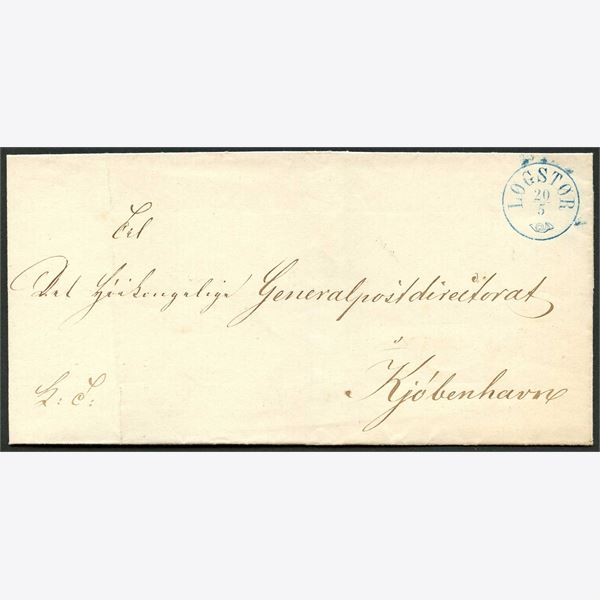 LØGSTØR
20
5
Til
Det Høikongelige Generalpostdirectorat
i
Kjøbenhavn
K: T: